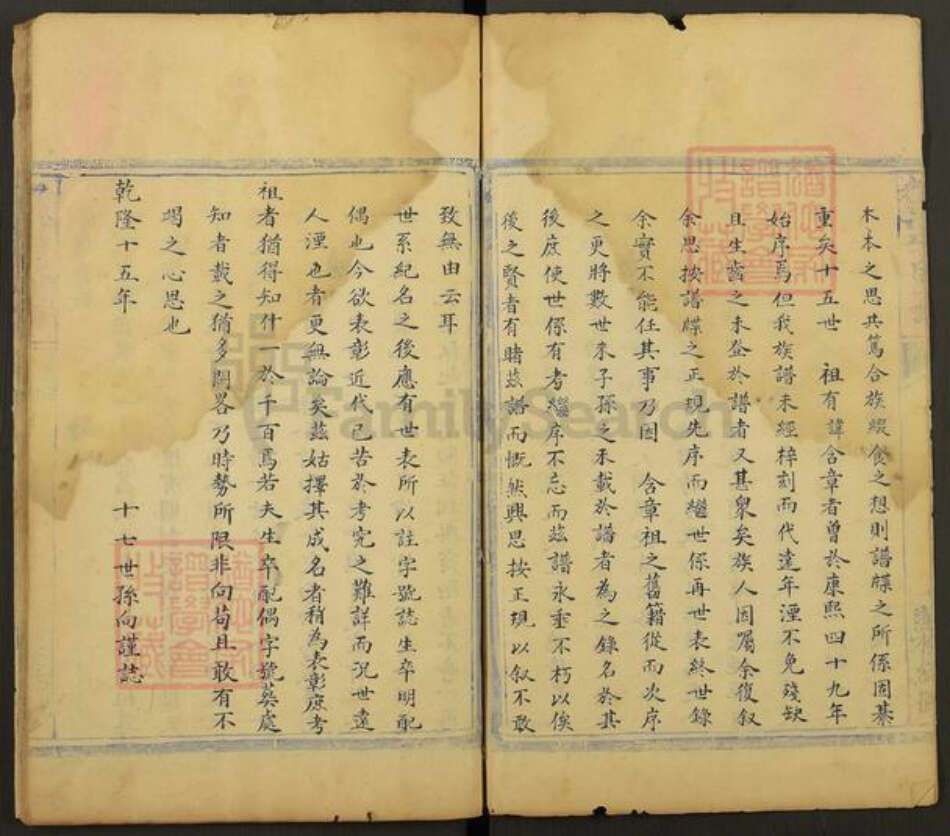 木本之思共篤合族綴食之想則譜牒之所係固綦
重矣十五世　祖有諱含章者曾於康熙四十九年
始序焉但我族譜未經梓刻而代遠年湮不免殘缺
且生齒之未登於譜者又甚衆矣族人因屬余復叙
余思按譜牒之正現先序而繼世係再世表終世錄
余實不能任其事乃因　含章祖之舊籍從而次序
之更將數世來子孫之未載於譜者為之錄名於其
後庶使世係有考繼序不忘而茲譜永垂不朽以俟
後之賢者有睹茲譜而慨然興思按正現以叙不敢
致無由云耳
世系紀名之後應有世表所以註字號誌生卒明配
偶也今欲表彰近代已苦於考究之難詳而況世遠
人湮也者更無論矣茲姑擇其成名者稍為表彰庶考
祖者猶得知什一於千百焉若夫生卒配偶字號葵處
知者載之猶多闕畧乃時勢所限非向苟且敢有不
竭之心思也
乾隆十五年　十七世孫向謹誌
FamilySearch